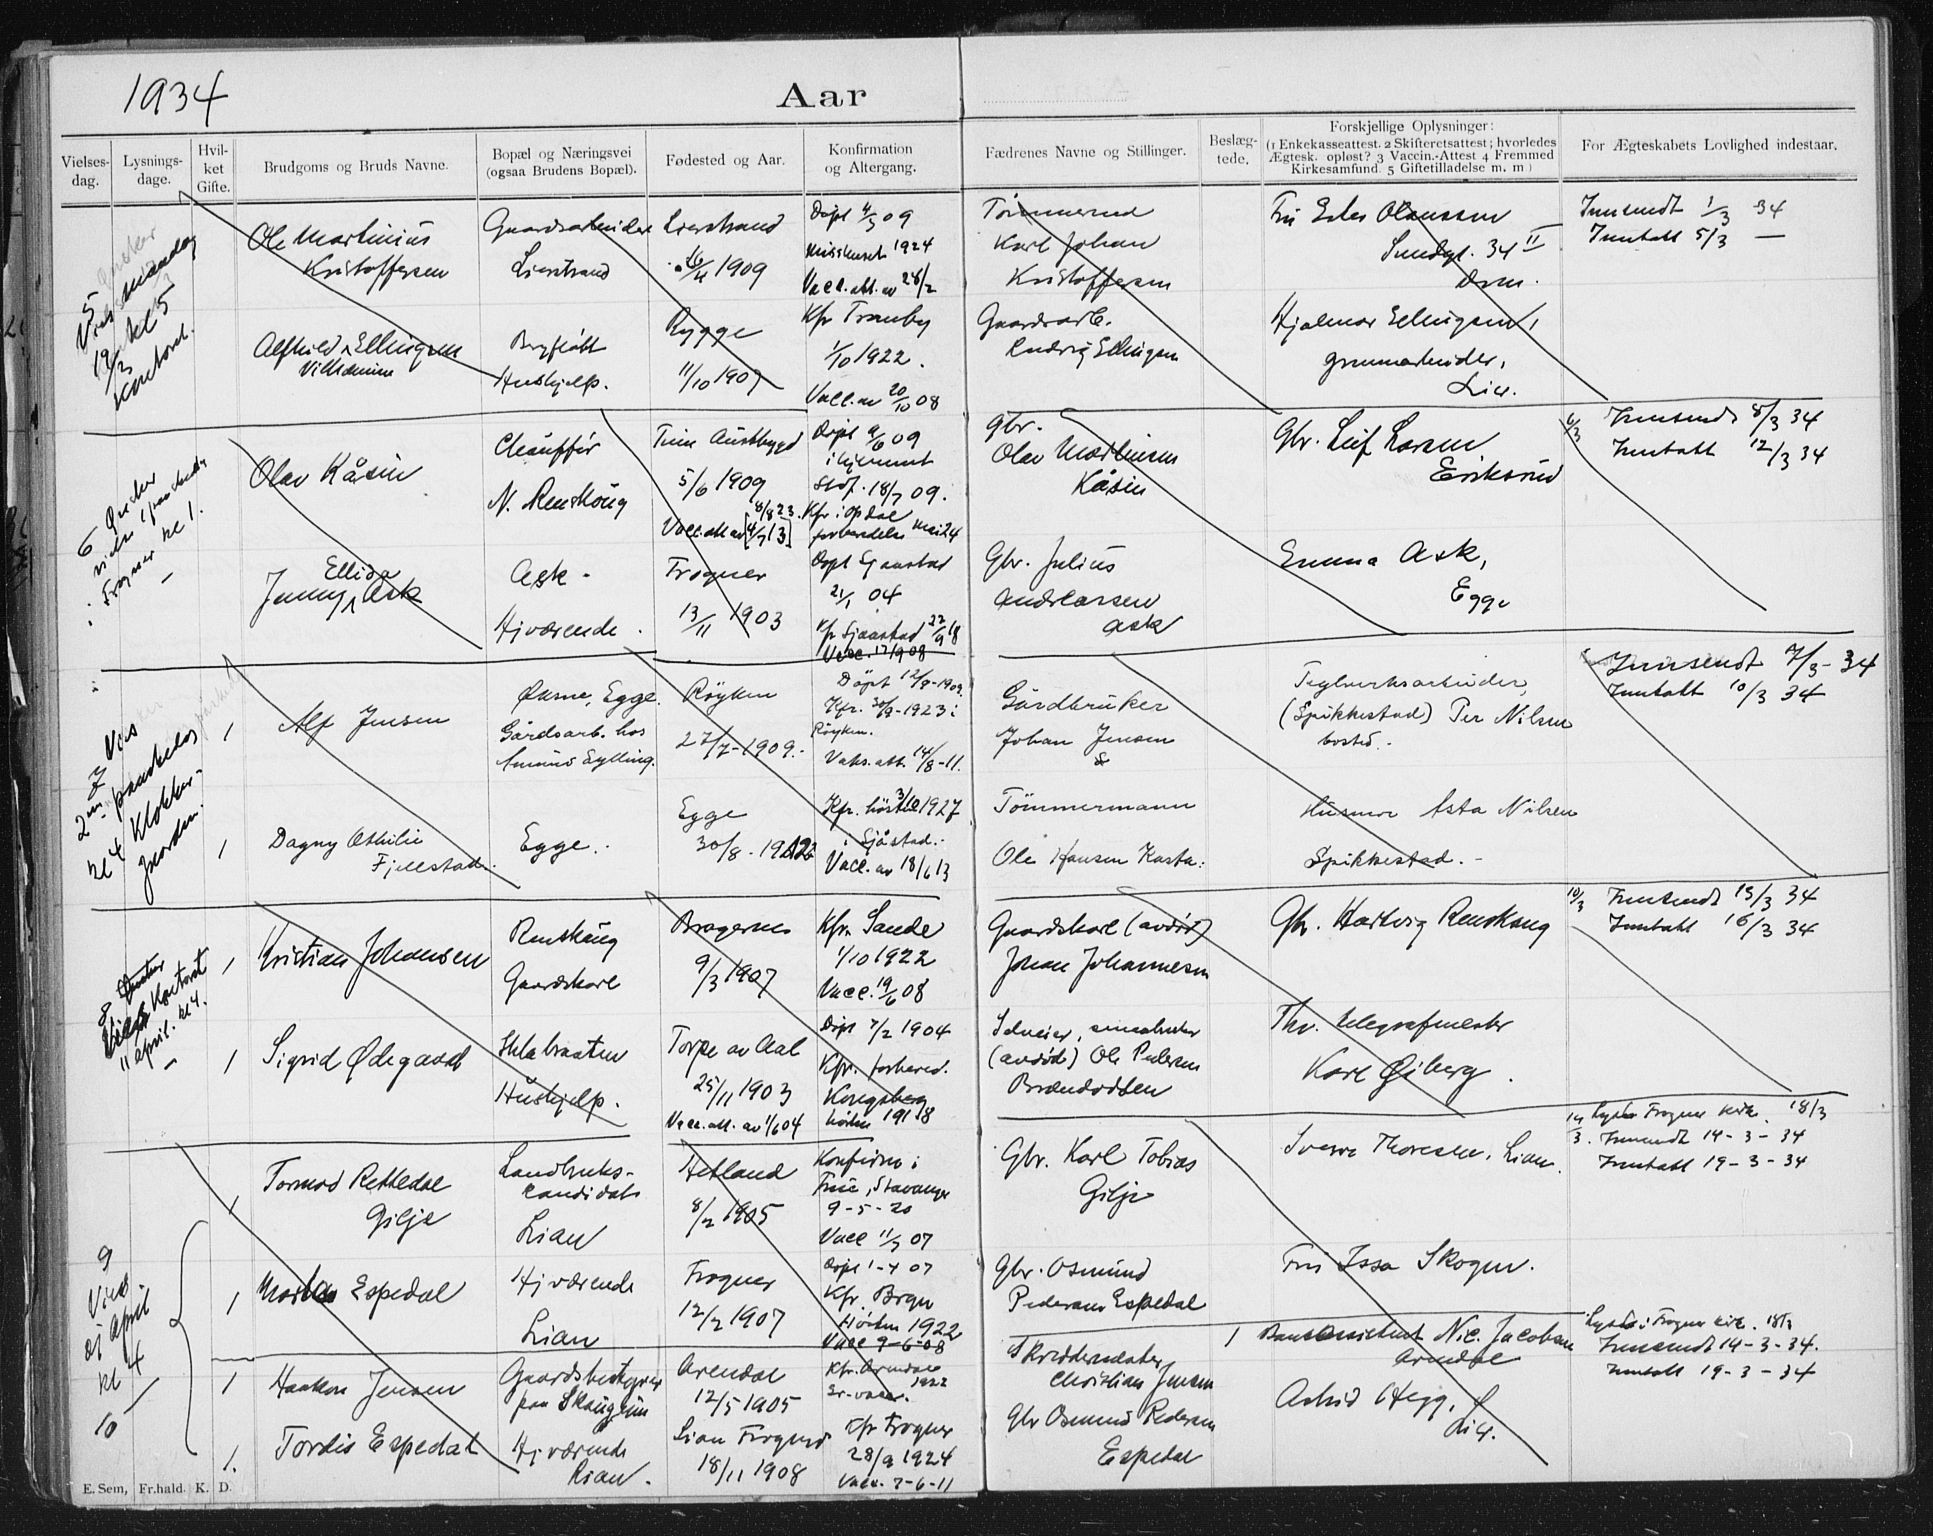 1934
Aar
Vielses-dag.
Lysnings-dage.
Hvil-ket Gifte.
Brudgoms og Bruds Navne.
Bopæl og Næringsvei (ogsaa Brudens Bopæl).
Fødested og Aar.
Konfirmation og Altergang.
Fædrenes Navne og Stillinger.
Beslæg-tede.
Forskjellige Oplysninger:
(1 Enkekasseattest. 2 Skifteretsattest; hvorledes
Ægtesk. opløst? 3 Vaccin.-Attest 4 Fremmed
Kirkesamfund. 5 Giftetilladelse m. m)
For Ægteskabets Lovlighed indestaar.
5
mandag
19/3 kl 5
kontoret.
Ole Martinius
Kristoffersen
Gaardsarbeider
Lierstrand
Lierstrand
1909
Døpt 4/3 09
1924
Vacc. att. av 28/2
Tømmermand
Karl Johan
Kristoffersen
Olaussen
34 II
Drm.
Innsendt 1/3 34
Inntatt 5/3 —
Alfhild Ellingsen
Vilhelmine
Bergfløtt
Hushjelp.
Rygge
11/10 1907
Kfr Tranby
1/10 1922.
Vacc. av 20/10 08
Gaardsarb.
Ludvig Ellingsen
Hjalmar Ellingsen,
Lier.
6
Frogner kl 1.
Olav Kåsin
Chauffør
N. Renskoug
Austbygd
5/6 1909
8/8 23.
Vacc. att av [4/7 13]
Døpt 9/6 09
i hjemmet
Stdf. 18/7 09.
Kfr. i Opdal
mai 24
Gbr.
Olav Martinsen
Kåsin
Gbr. Leif Larsen
Eriksrud
6/3
Innsendt 8/3 34
Inntatt 12/3 34
Ellida
Jenny Ask
Ask -
Hjværende.
Frogner
13/11 1903
Døpt Sjaastad
21/1 04
Kfr Sjaastad 22/9 18
Vacc. 17/9 08
Gbr. Julius
Andreassen
Ask
Emma Ask,
Egge
7
Vies
2nen paaskedag
kl 4 Klokker-
gaarden.
1
Alf Jensen
Økern, Egge.
Gårdsarb. hos
Amund Gylling.
Røyken
27/7-1909.-
Døpt 12/9-1909.
Kfr. 30/9-1923 i
Røyken.
Vaks. att. 14/8-11.
Gårdbruker
Johan Jensen
Teglverksarbeider,
(Spikkestad) Per Nilsen
bosted.
Innsendt 7/3-34
Inntatt 10/3 34
1
Dagny Othilie
Fjellstad.
Egge.
Egge
30/8 - 1912
Kfr. 1927
Sjåstad.-
Vacc. av 18/6 13
Tømmermann
Ole Hansen Kasta.
Husmor Asta Nilsen
Spikkestad. -
8
Kontoret
11 april. kl 4.
1
Kristian Johansen
Renskaug
Gaardskarl
Bragernes
9/3 1907
Kfr. Sande
1/10 1922
Vacc. 19/6 08
Gaardskarl (avdød)
Johan Johannesen
Gbr. Hartvig Renskaug
10/3
Innsendt 13/3 34
Inntatt 16/3 34
1
Sigrid Ødegaard
Hushjelp.
Torpe av Aal
25/11 1903
Vacc. att. av 1/6 04
Døpt 7/2 1904
Kfr. forbered.
Kongsberg
høsten 1918
(avdød) Ole Pedersen
Brændodden
Thv. telegrafmester
Karl Øiberg.
9
Vies
april
kl 4
10
1
Tormod Rettedal
Gilje
Landbruks-
kandidat
Lian
Hetland
8/2 1905
Konfirm i
Frue, Stavanger
9-5-20
Vacc 11/7 07
Gbr. Karl Tobias
Gilje
Sverre Thoresen, Lian.
14/3.
Lyst i Frogner kirke. 18/3
Innsendt 14-3-34
Inntatt 19-3-34
1
Espedal
Hjværende
Lian
Frogner
12/2 1907
Døpt 1-4 07
Kfr. Brgn
Høsten 1922
Vacc 9-6-08
Gbr. Osmund
Pedersen Espedal
Fru Issa Skogen.
1
Haakon Jensen
Gaardsbestyrer
paa Skaugum
Arendal
12/5 1905
Kfr. Arendal
1922
Skreddermester
Christian Jensen
1
Bankassistent Nic. Jacobsen
Arendal
Lyst i Frogner kirke. 18/3
Innsendt 14-3-34.
Inntatt 19-3-34
1.
Tordis Espedal
Hjværende
Lian.
Lian Frogner
18/11 1908
Kfr Frogner
28/9 1924
Vacc. 7-6-11
Gbr Osmund Pedersen
Espedal
Astrid Hegg,
Lier.
E. Sem, Fr.hald. K. D.